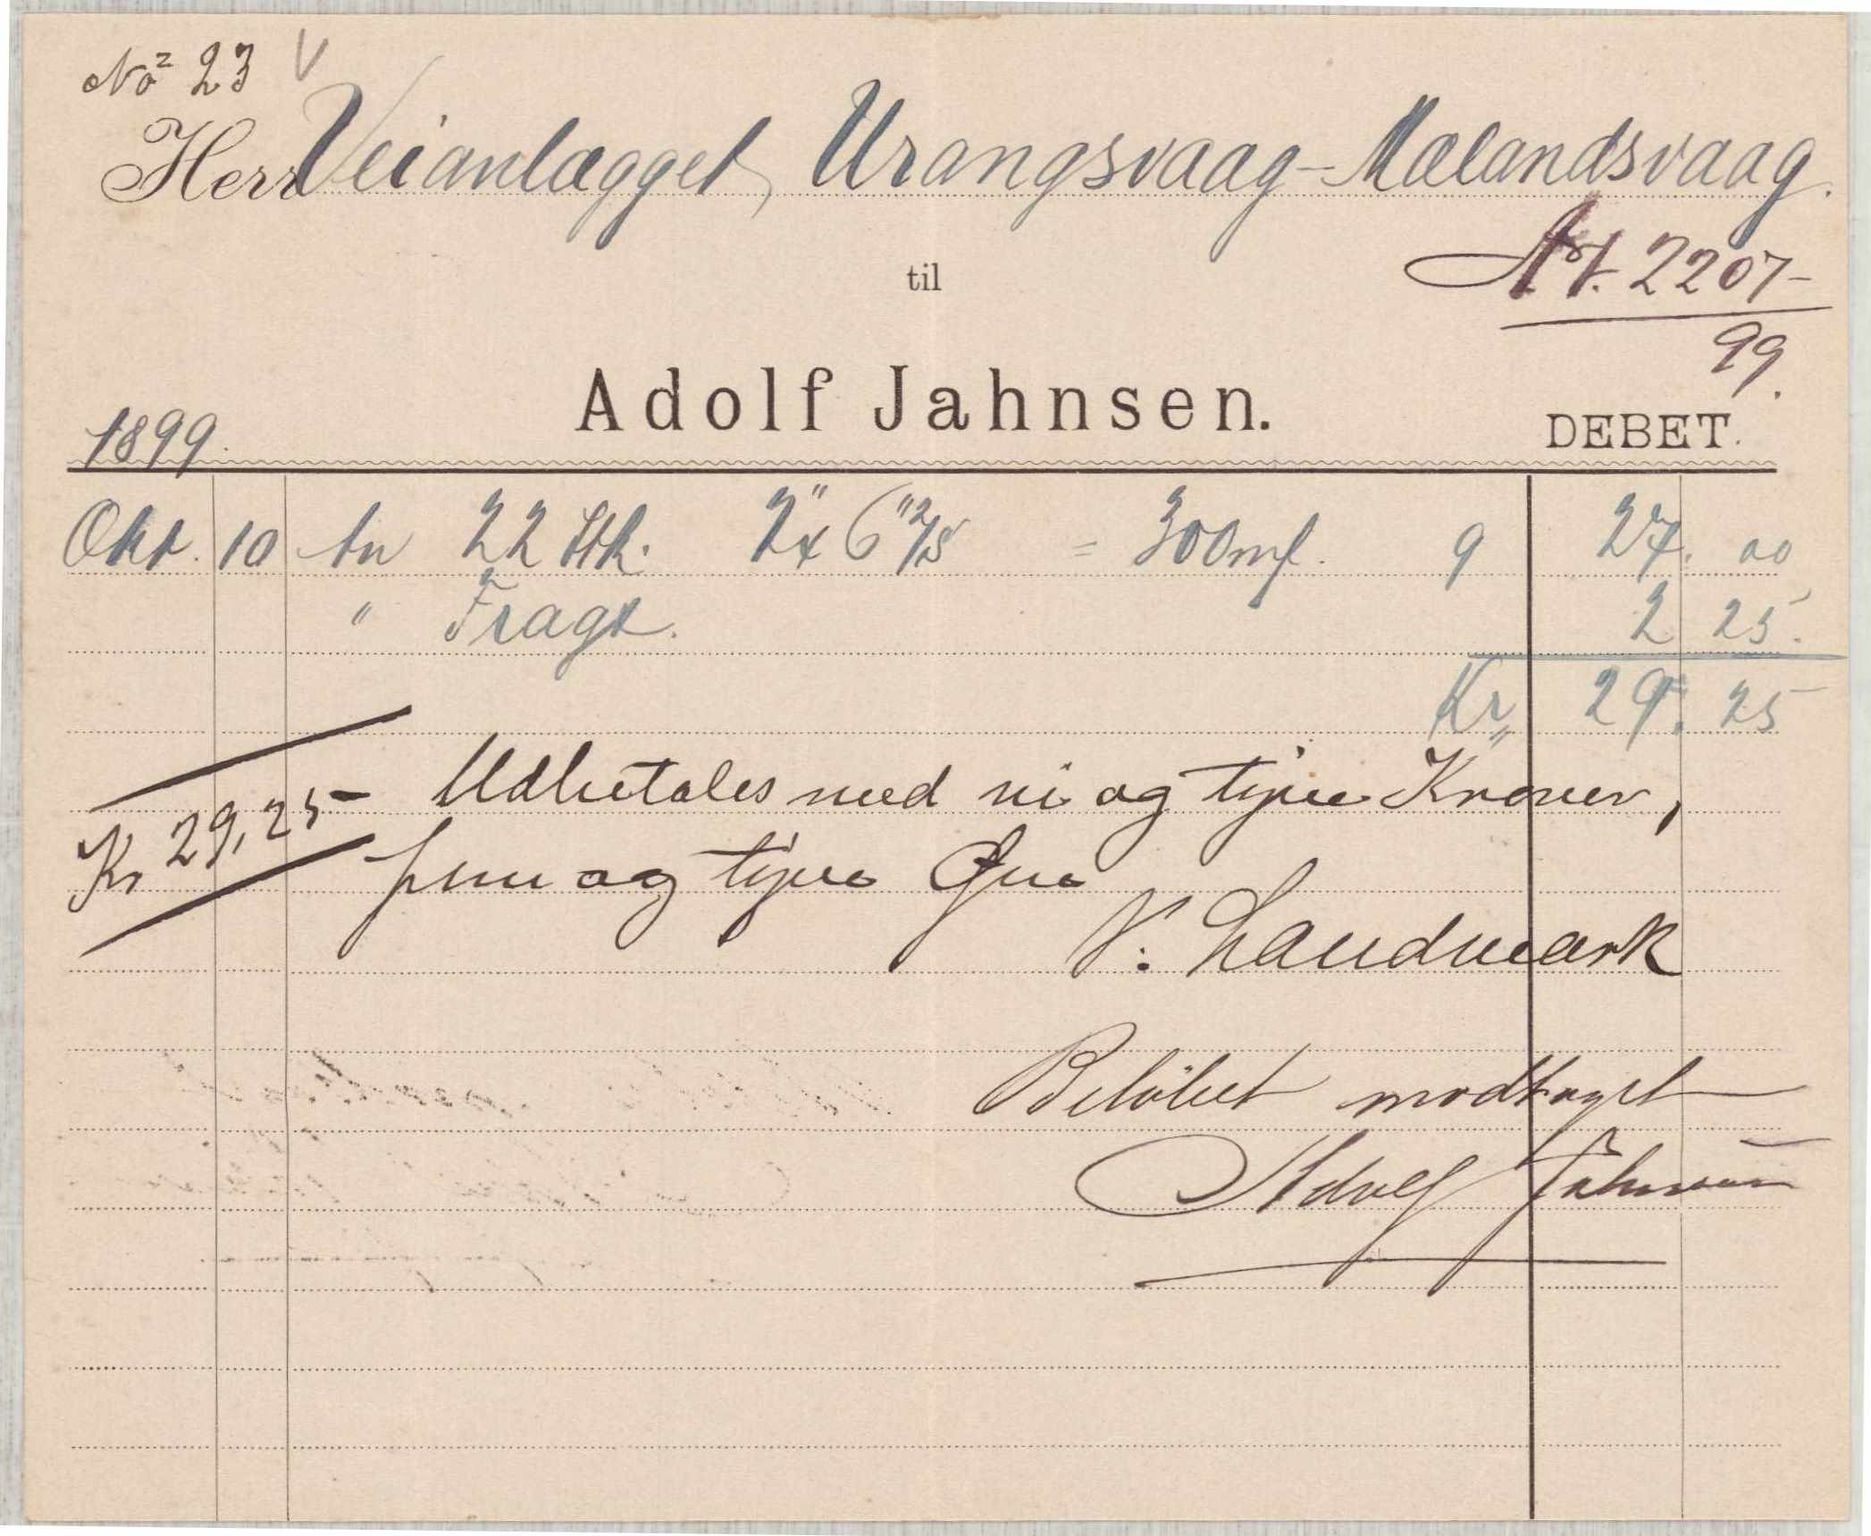 No 23 V
Herr Veianlægget, Urangsvaag-Mælandsvaag.
til
At. 2207-
99.
Adolf Jahnsen.
1899.
DEBET.
Okt. 10 An 22 Stk. 2" x 6" = 300 mf. 9 27. 00
" Fragt. 2 25.
Kr 29. 25
Kr 29,25
Udbetales med ni og tyve Kroner,
fem og tyve Øre
N. Landmark
Beløbet modtaget
Adolf Jahnsen